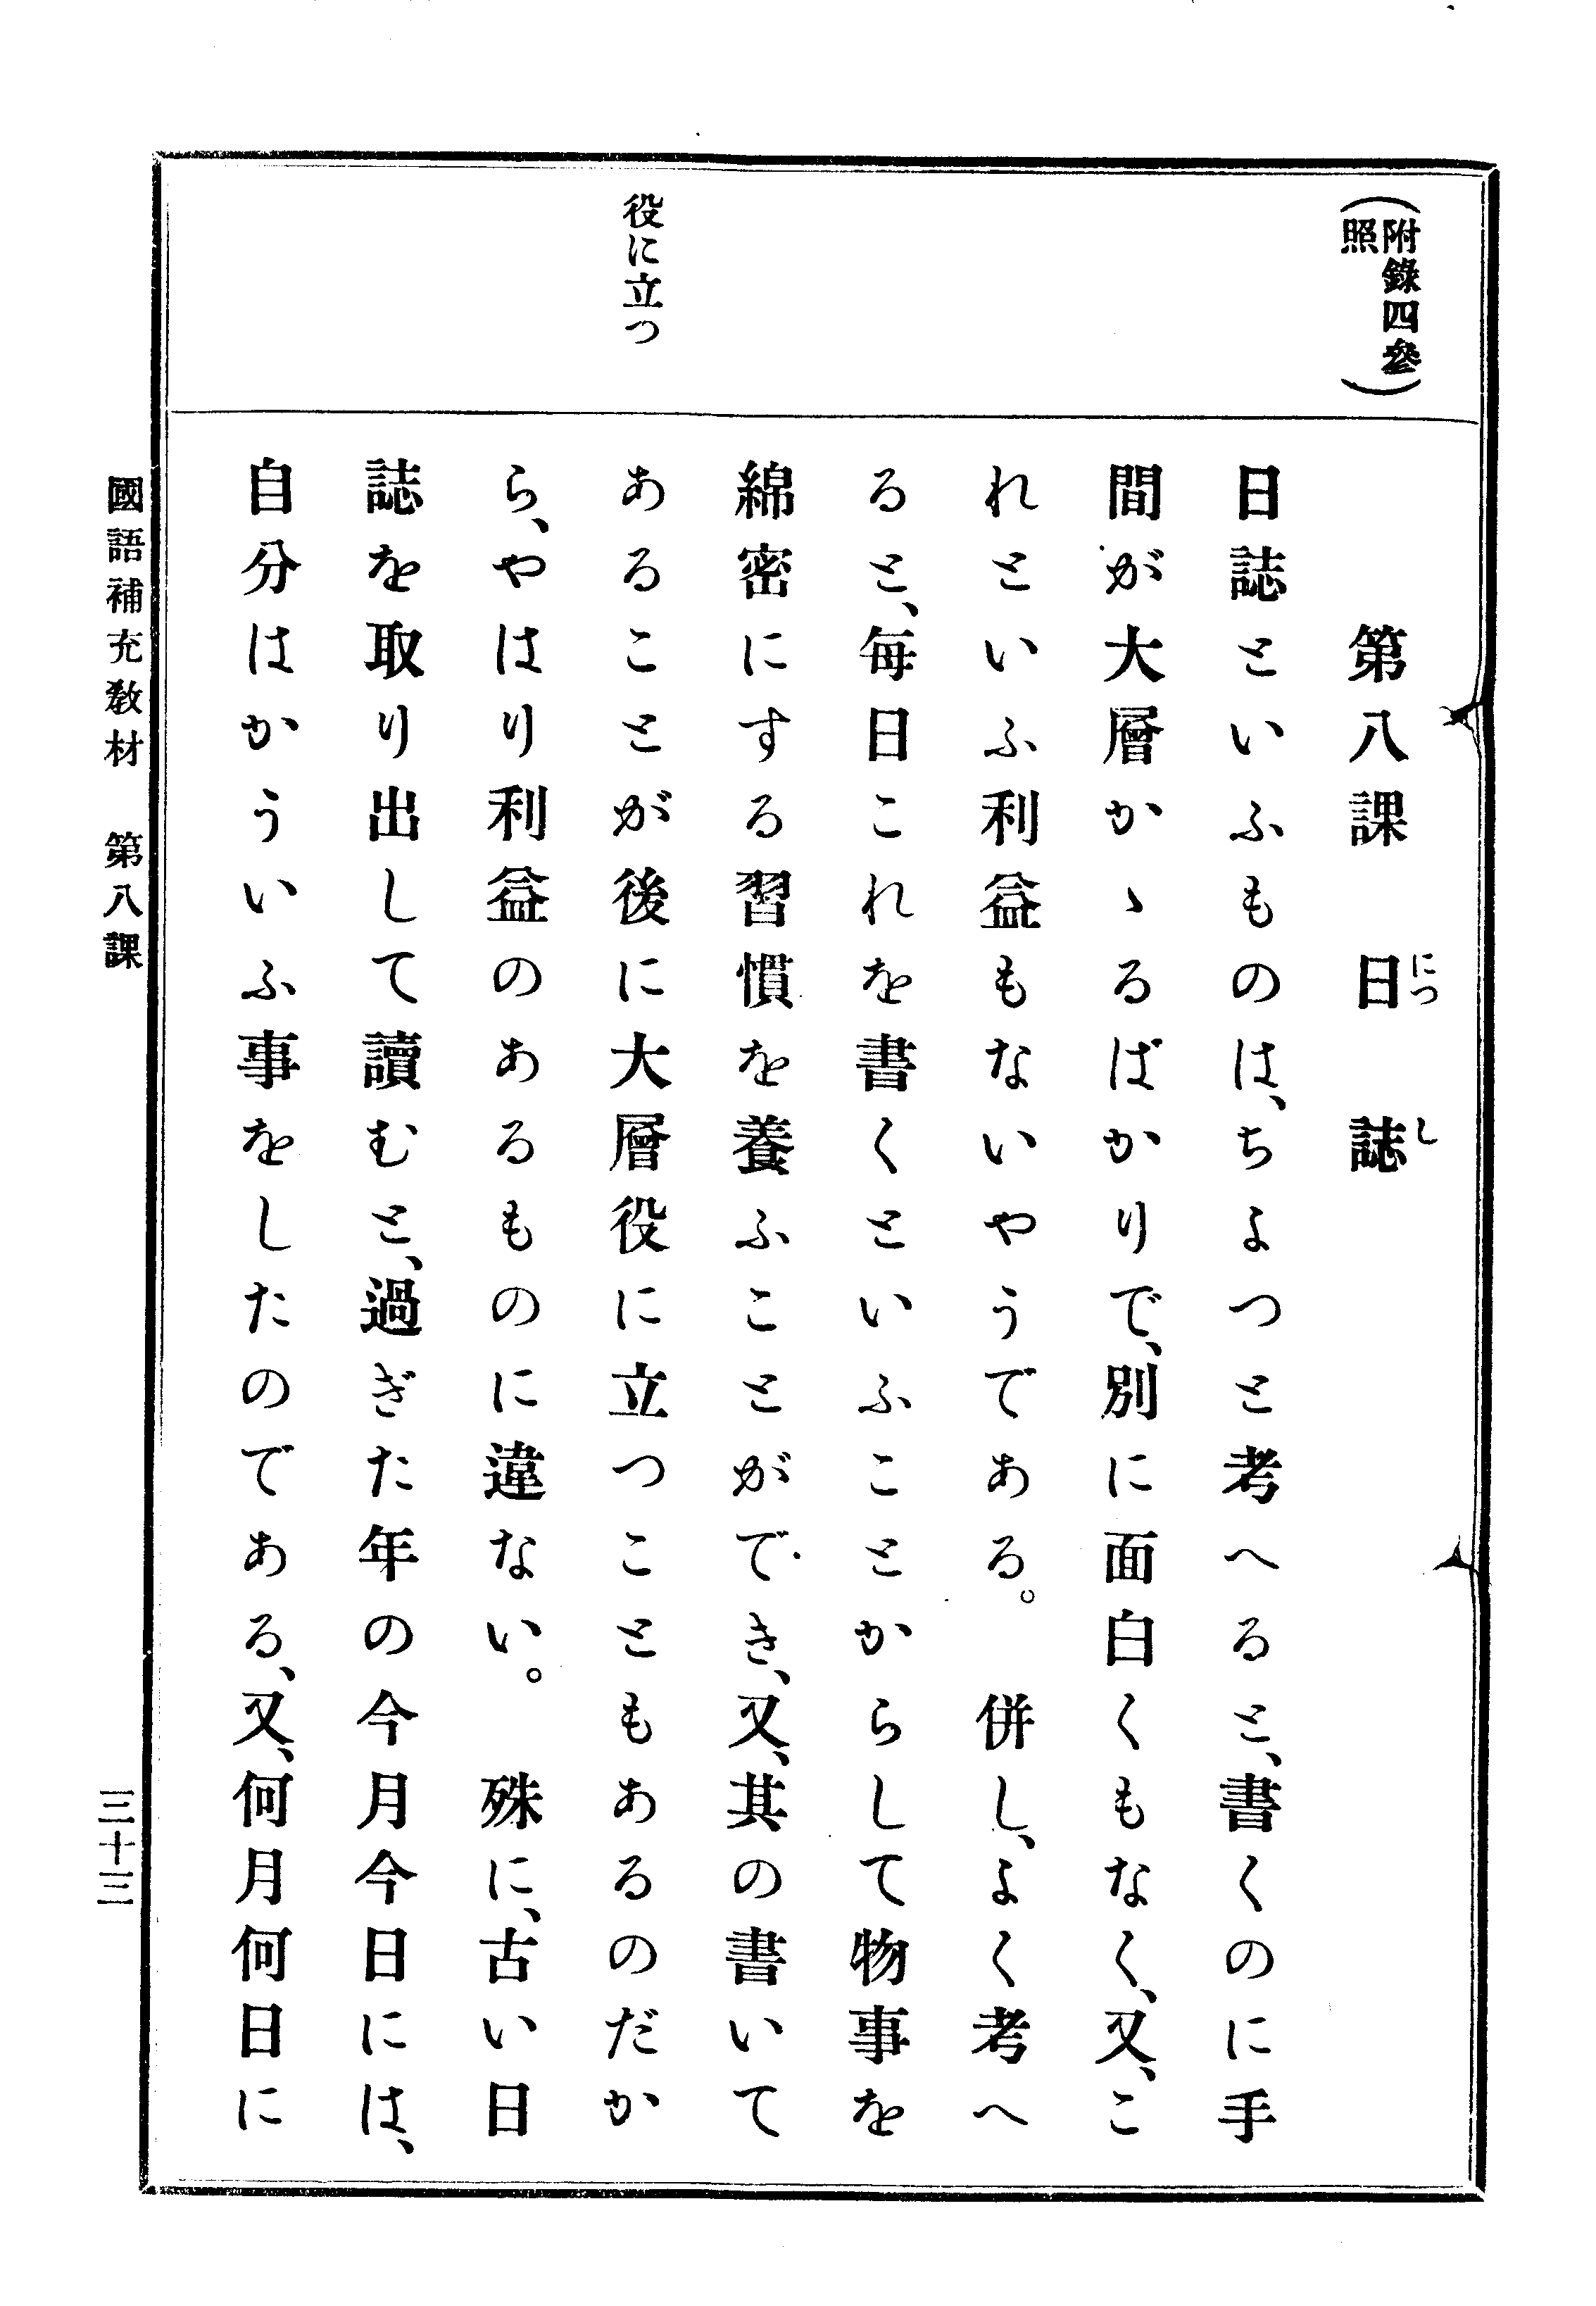 (附錄四參
照)
役に立つ
第八課　日誌
につ　し
日誌といふものは、ちよつと考へると、書くのに手
間が大層かゝるばかりで、別に面白くもなく、又、こ
れといふ利益もないやうである。　併し、よく考へ
ると、每日これを書くといふことからして物事を
綿密にする習慣を養ふことができ、又、其の書いて
あることが後に大層役に立つこともあるのだか
ら、やはり利益のあるものに違ない。　殊に、古い日
誌を取り出して讀むと、過ぎた年の今月今日には、
自分はかういふ事をしたのである、又、何月何日に
國語補充敎材　第八課
三十三